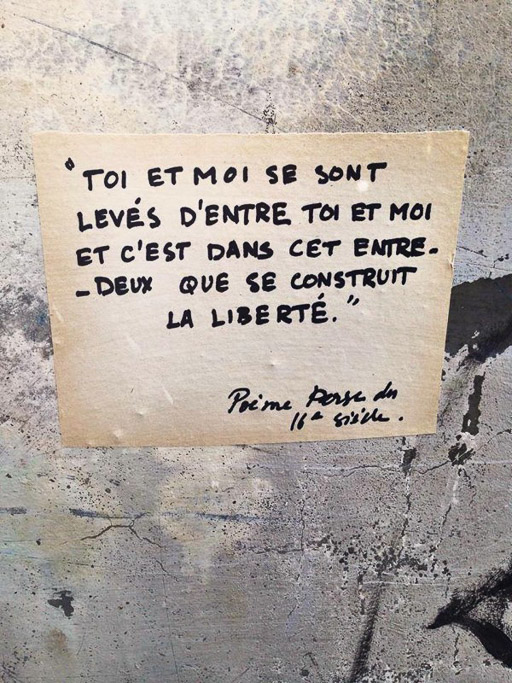 "TOI ET MOI SE SONT
LEVÉS D'ENTRE TOI ET MOI
ET C'EST DANS CET ENTRE-
-DEUX QUE SE CONSTRUIT
LA LIBERTÉ."
Poème Perse du
16e siècle.